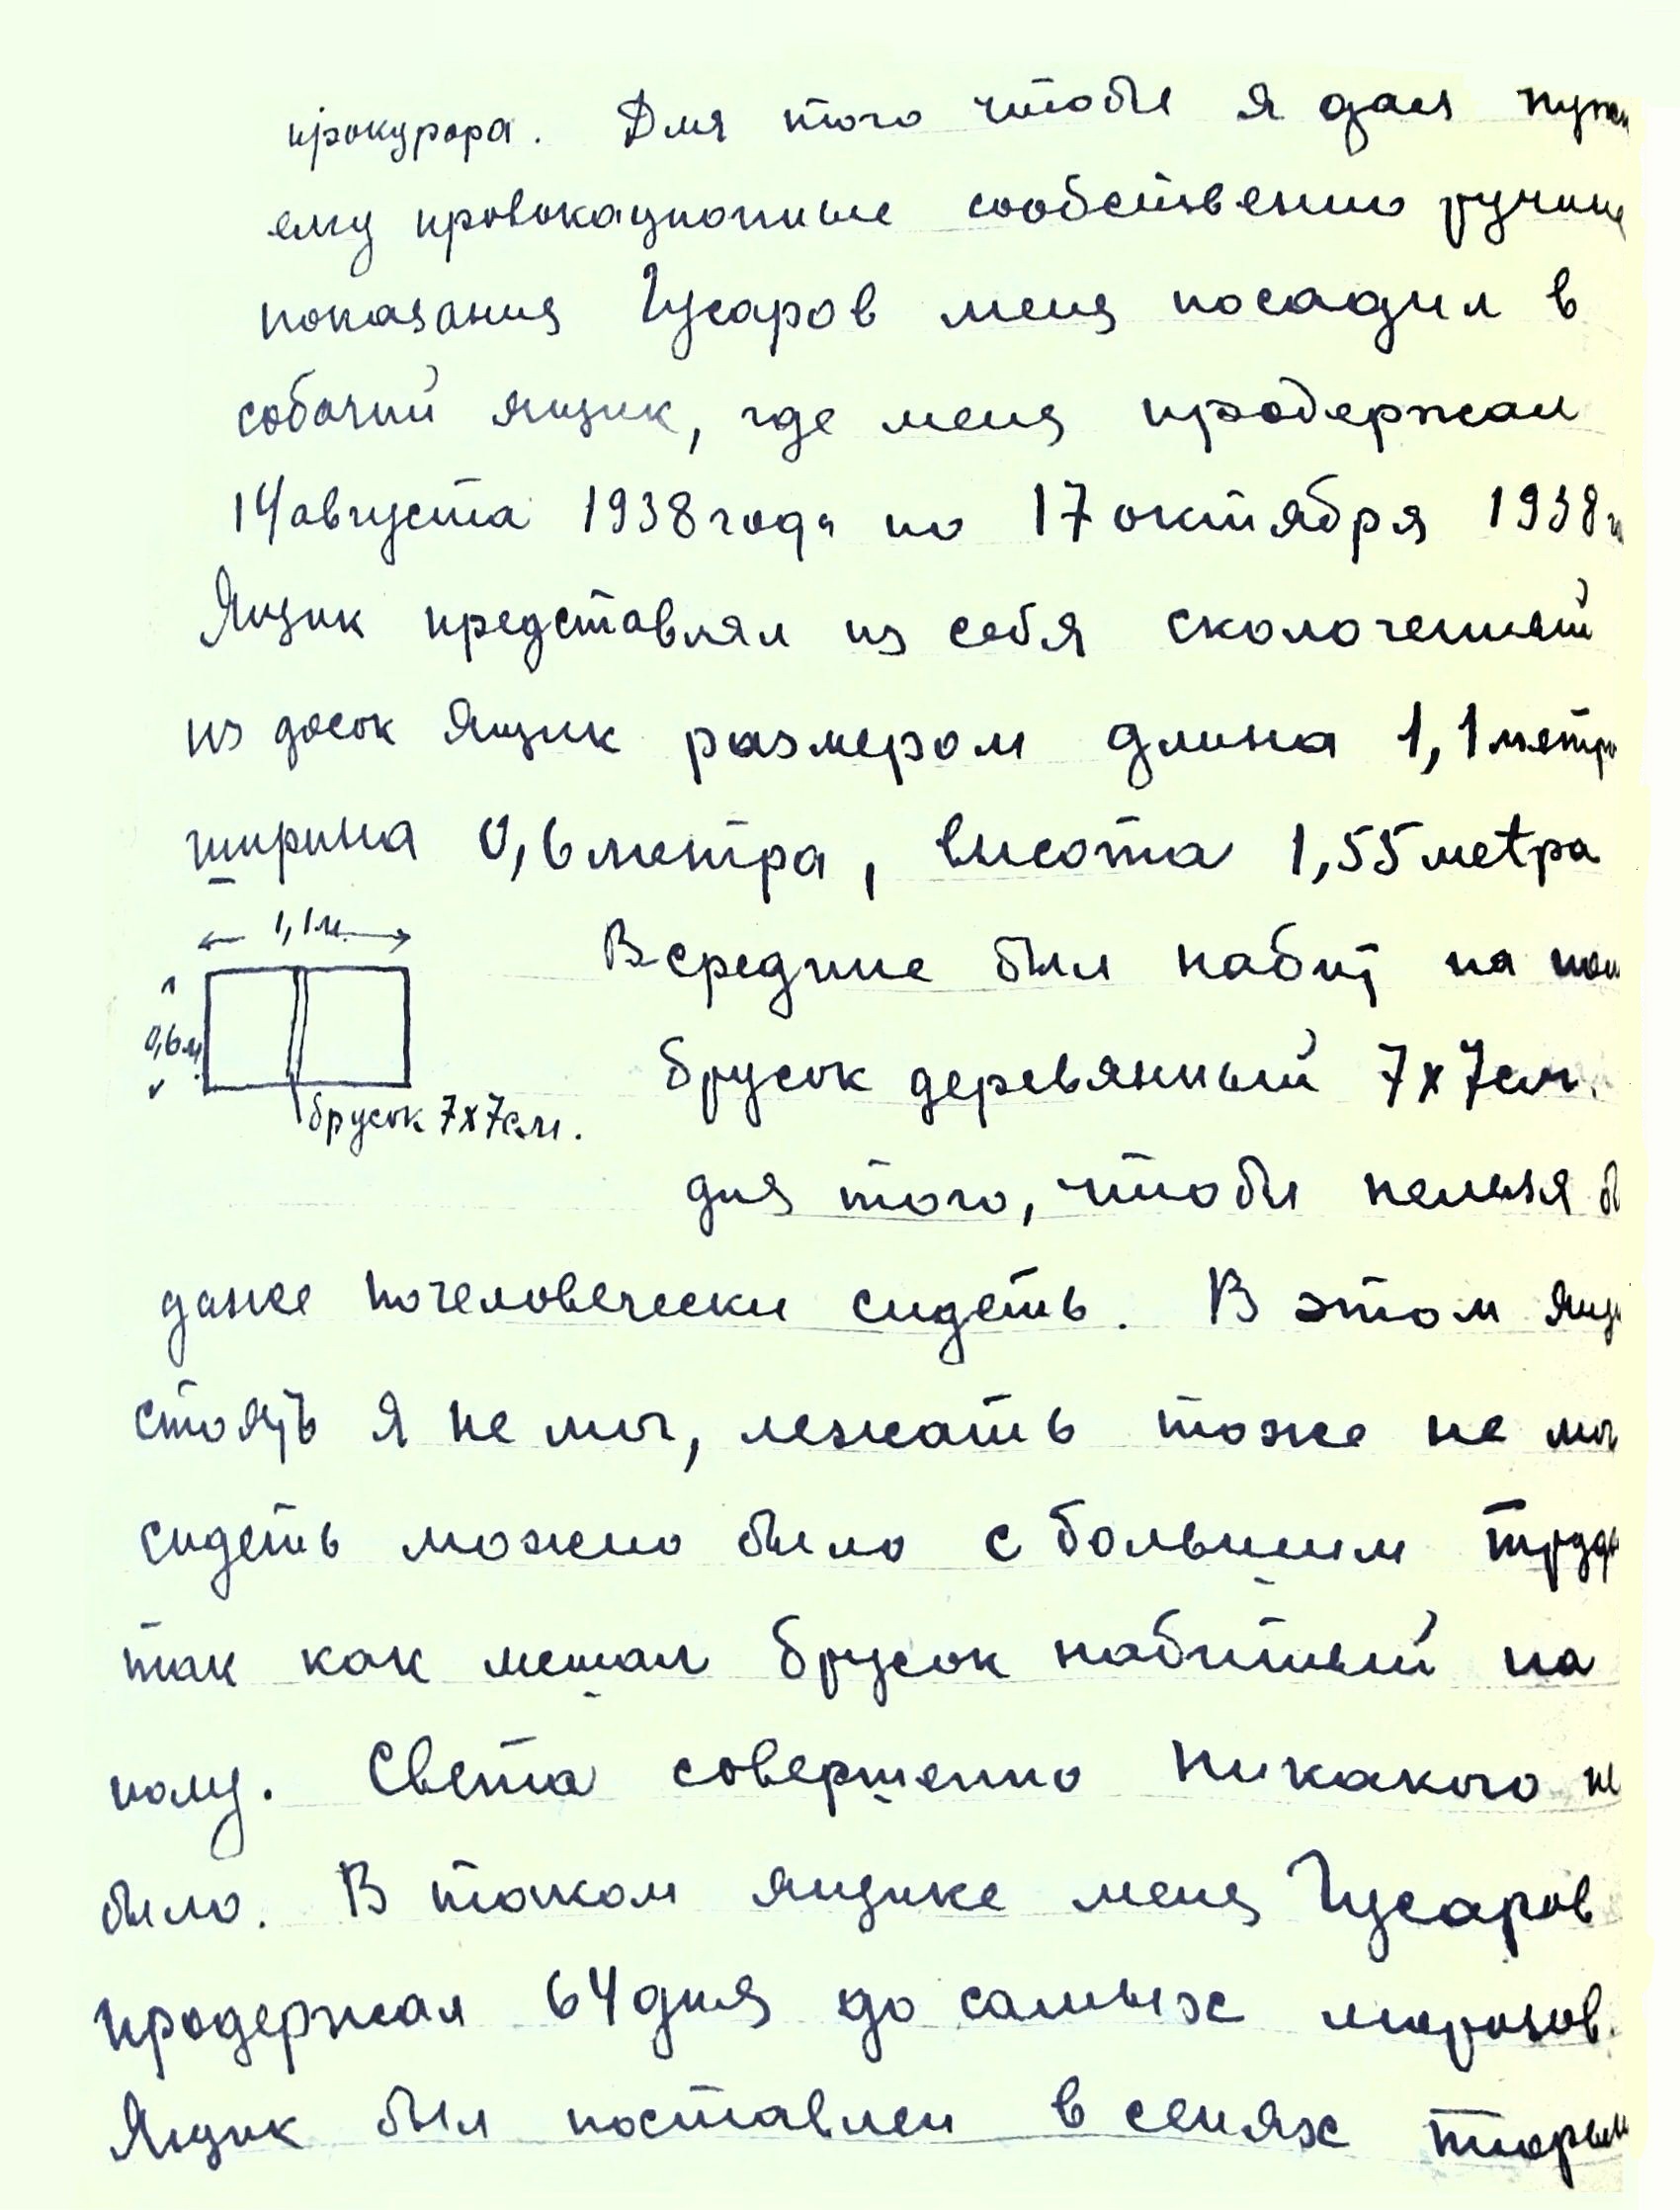 прокурора. Для того чтобы я дал нужн
ему провокационные сообственно ручны
показания Гусаров меня посадил в
собачий ящик, где меня продержал
14 августа 1938 года по 17 октября 1938 г
Ящик представлял из себя сколоченный
из досок ящик размером длина 1,1 метра
ширина 0,6 метра, высота 1,55 метра
1,1 м.
0,6 м.
брусок 7х7см.
В средине был набит на пол
брусок деревянный 7х7см.
для того, чтобы нельзя б
даже почеловечески сидеть. В этом ящи
стоять я не мог, лежать тоже не мог
сидеть можно было с большим трудо
так как мешал брусок набитый на
полу. Света совершенно никакого не
было. В таком ящике меня Гусаров
продержал 64 дня до самых морозов.
Ящик был поставлен в сенях тюрьм